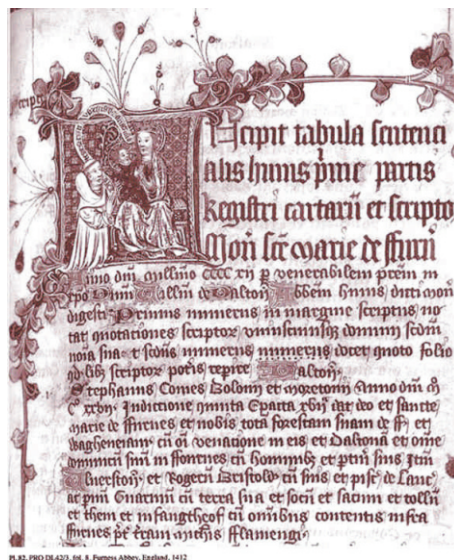 Incipit tabula sentenci
alis huius prime partis
Registri cartarū et scripto
Moñ scē marie de ffurñ
Anno dñi millīo CCCC xij p venerabilem prēm in
xpo Willm de Dalton Abbem huius dicti moñ
digesti Primus numerus in margine scriptus no
tat quotaciones scriptoꝝ uniuscuiusqꝫ domini scdm
noia sua t scdus numerus docet quoto folio
scriptoꝝ potis repire Dalton
Stephanus Comes Bolonī et moretonī Anno dm̄ M
C xxvij Indictione quinta Epacta xvij dat deo et sancte
marie de ffurnes et nobis tota forestam suam de ff et
Wagheneiam cū oī venatione in eis et Daltona et om̄e
dominiū suū in ffornes cū hominibꝫ et ptin suis Itm
Ulverston et Rogerū Bristolw cū suis et pisc de Lanc
ac pm Guarinū cū terra sua et socū et sacum et tollū
et them et infangtheof cū omibus contentis infra
ffurnes
Pl. 82. PRO DL42/3, fol. 8, Furness Abbey, England, 1412